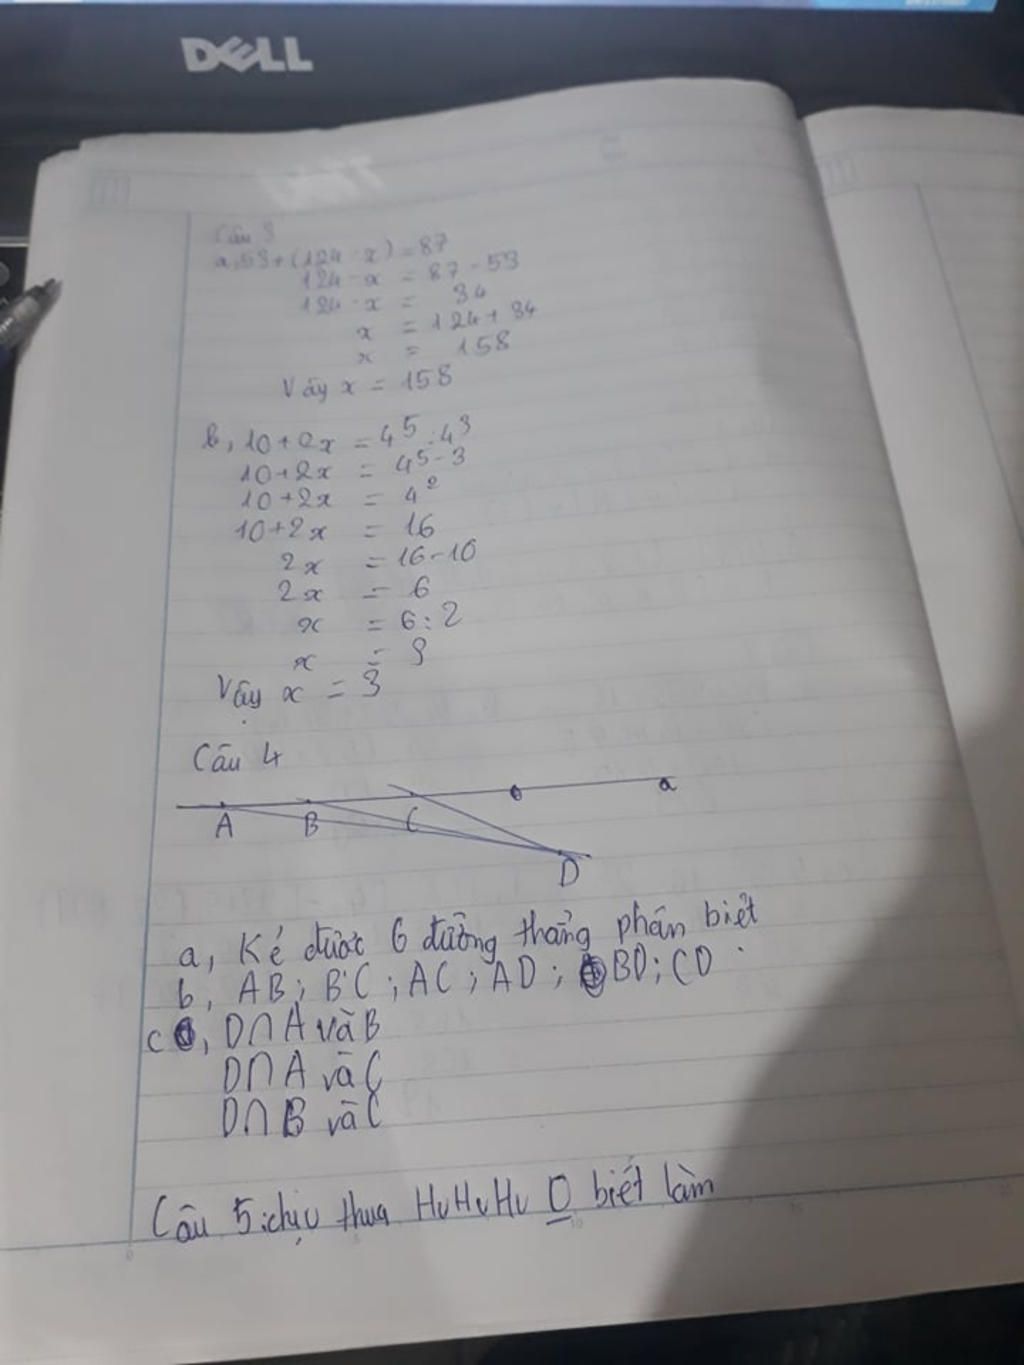 DELL
Câu 3
a, 53 + (124 - x) = 87
124 - x = 87 - 53
124 - x = 34
x = 124 + 34
x = 158
Vây x = 158
b, 10 + 2x = 4⁵ : 4³
10 + 2x = 4⁵⁻³
10 + 2x = 4²
10 + 2x = 16
2x = 16 - 10
2x = 6
x = 6 : 2
x = 3
Vậy x = 3
Câu 4
A B C a
D
a, Kẻ được 6 đường thẳng phân biệt
b, AB ; BC ; AC ; AD ; BD ; CD
c, D∩A và B
D∩A và C
D∩B và C
Câu 5: chịu thua HuHuHu O biết làm